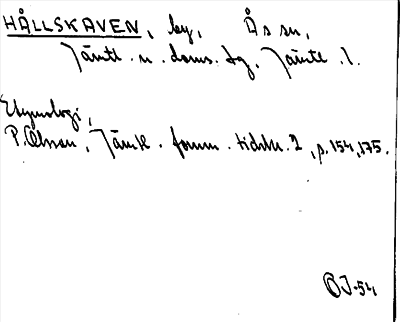 HÅLLSKAVEN, by, Ås sn,
Jämtl. n. doms. tg. Jämtl. l.
Etymologi,
P. Olsson, Jämtl. fornm. tidskr. 2, p. 154, 175.
BJ-54